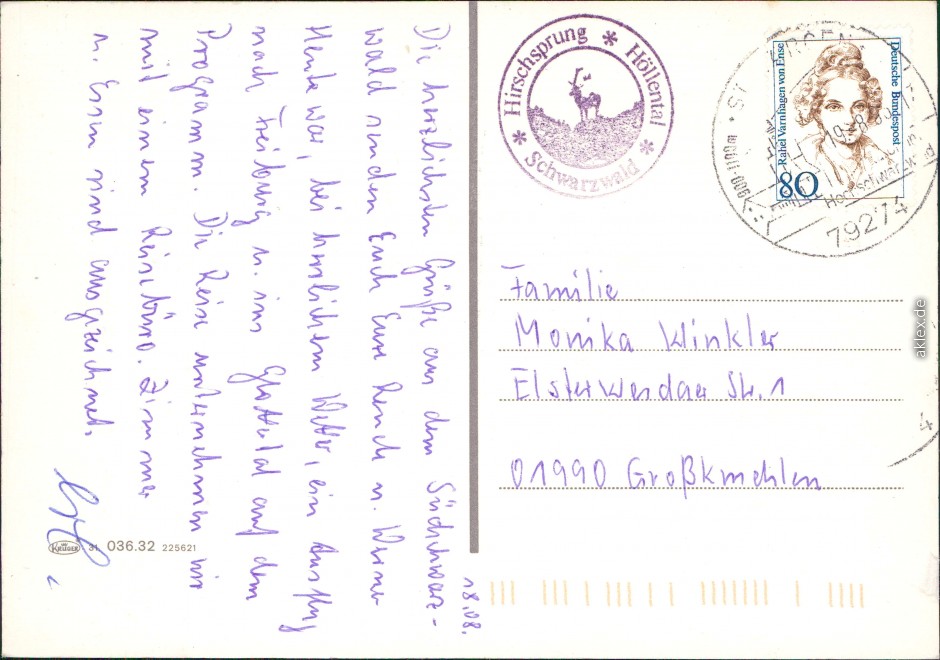 18.08.
Die herzlichsten Grüße aus dem Südschwarz-
wald senden Euch Eure u. Werner
Heute war, bei herrlichem Wetter, ein Ausflug
nach Freiburg u. ins Glottertal auf dem
Programm. Die Reise unternehmen wir
mit einem Reisebüro. Zimmer
u. Essen sind ausgezeichnet.
KRÜGER 31 036.32 225621
* Hirschsprung * Höllental
* Schwarzwald *
Deutsche Bundespost
Rahel Varnhagen von Ense
80
ST
800-1100m
79274
Familie
Monika Winkler
Elsterwerdaer Str. 1
01990 Großkmehlen
aklex.de